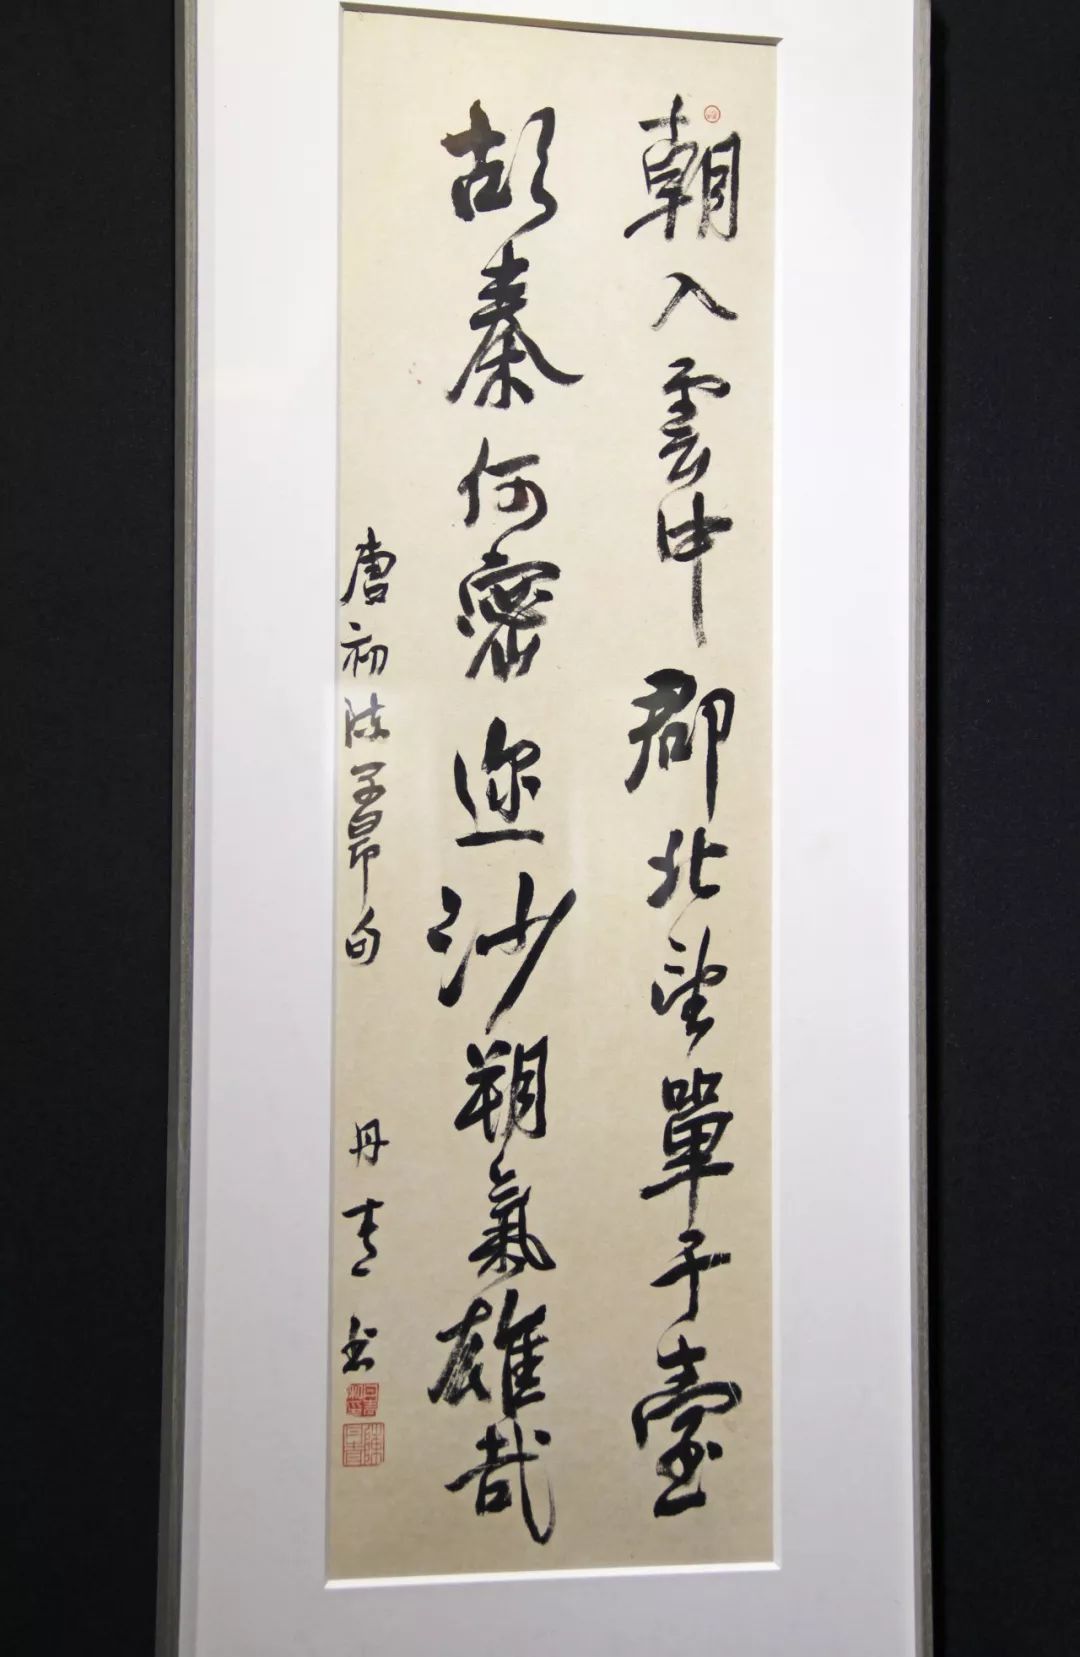 朝入雲中郡北望單于臺
胡秦何密迩沙朔氣雄哉
唐初陈子昂句
丹青书